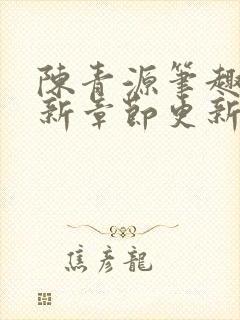 陳青源筆趣
新章節更新
焦彥龍